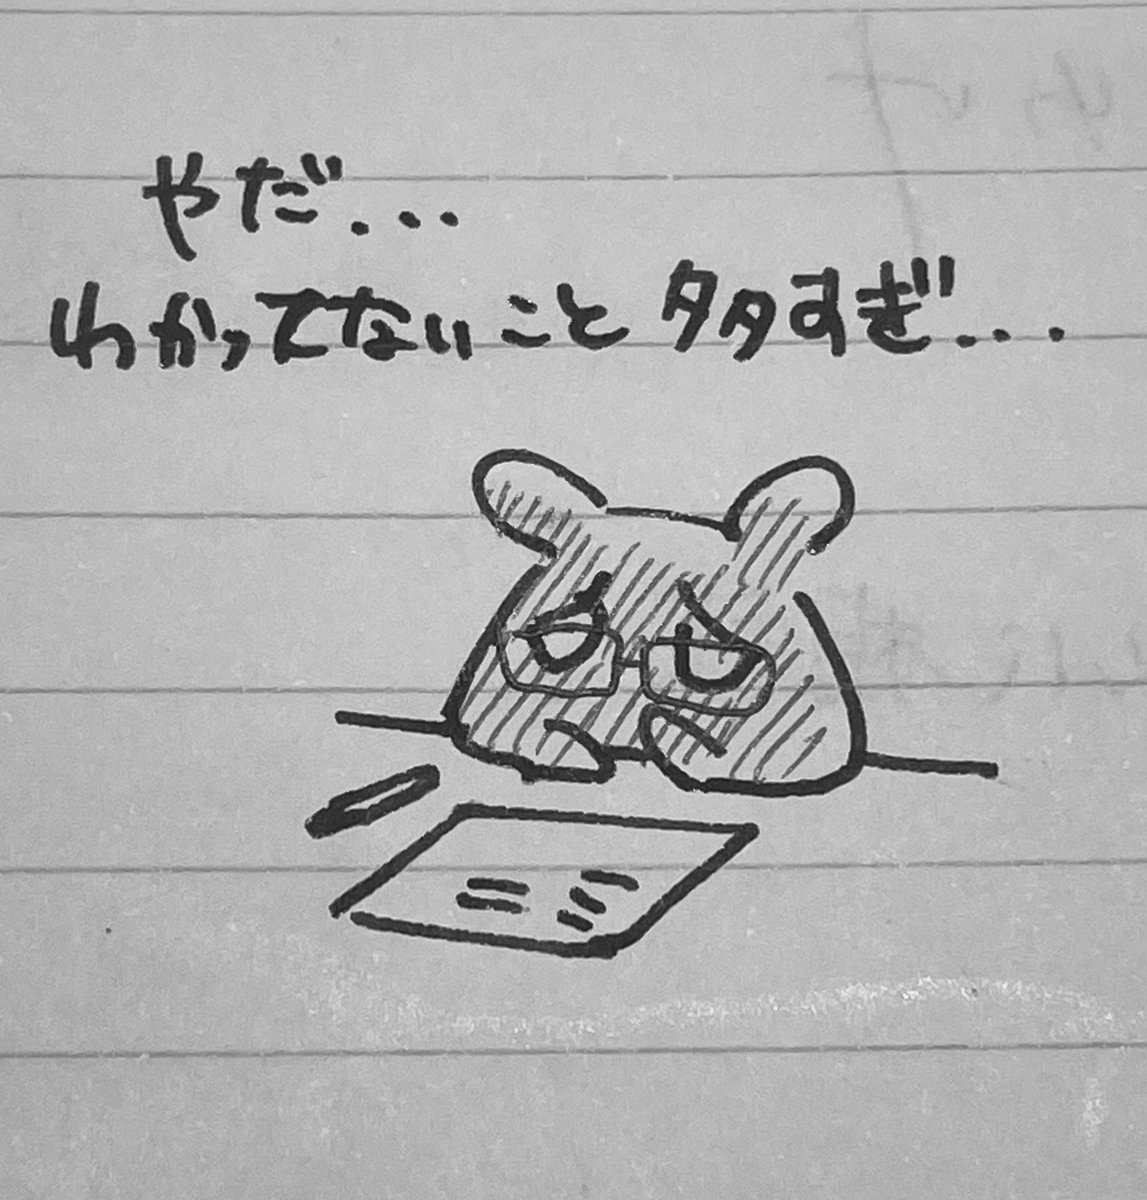 やだ...
わかってないこと多すぎ...